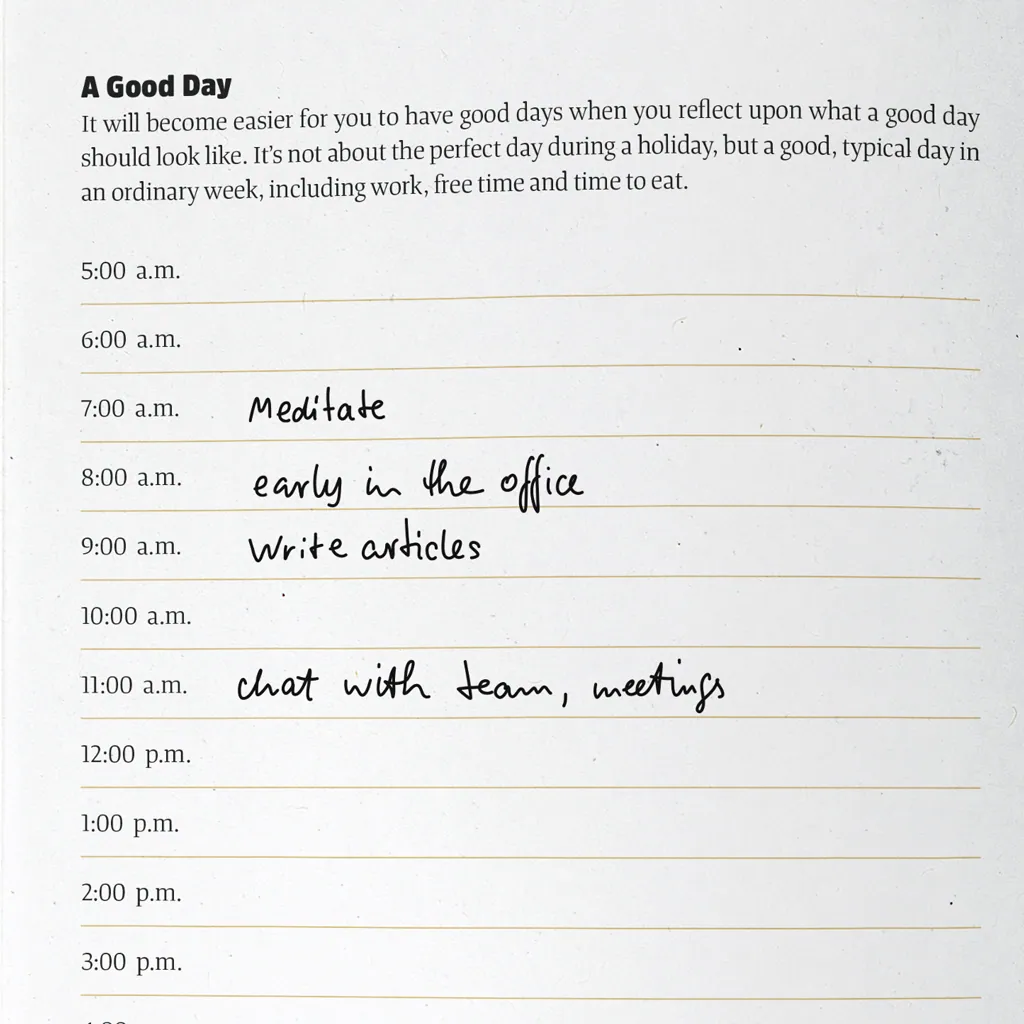 A Good Day
It will become easier for you to have good days when you reflect upon what a good day
should look like. It's not about the perfect day during a holiday, but a good, typical day in
an ordinary week, including work, free time and time to eat.
5:00 a.m.
6:00 a.m.
7:00 a.m. Meditate
8:00 a.m. early in the office
9:00 a.m. Write articles
10:00 a.m.
11:00 a.m. chat with team, meetings
12:00 p.m.
1:00 p.m.
2:00 p.m.
3:00 p.m.